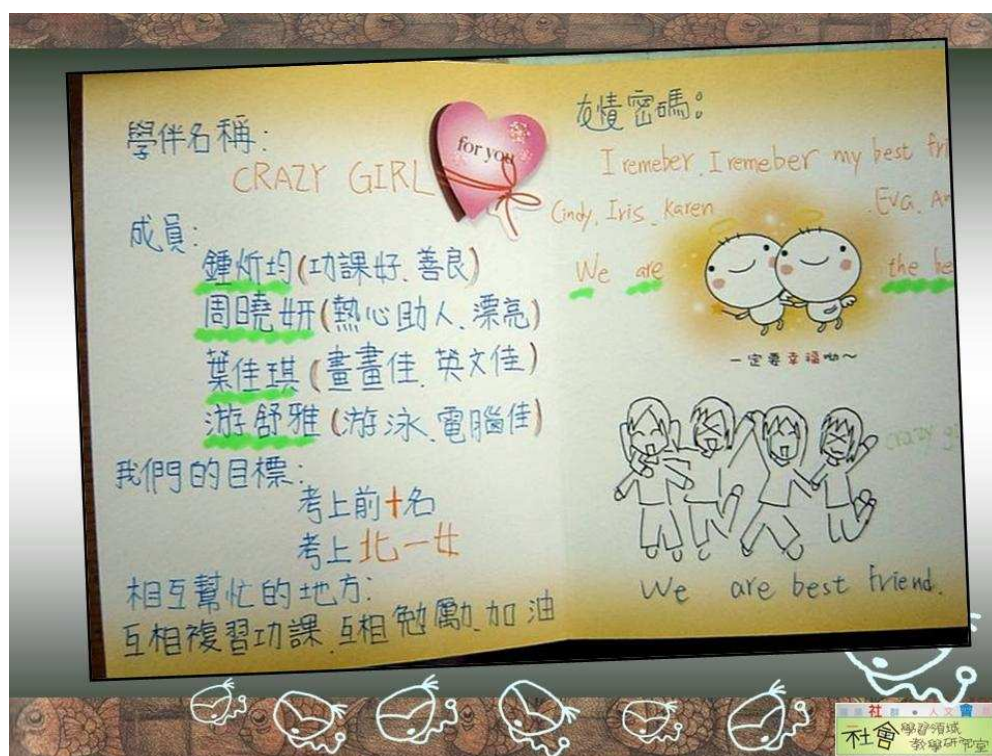 學伴名稱:
CRAZY GIRL
for you
成員:
鍾炘均(功課好、善良)
周曉妍(熱心助人、漂亮)
葉佳琪(畫畫佳、英文佳)
游舒雅(游泳、電腦佳)
我們的目標:
考上前十名
考上北一女
相互幫忙的地方:
互相複習功課、互相勉勵、加油
友情密碼:
I remeber, I remeber my best fri
Cindy, Iris, Karen Eva, An
We are the be
一定要幸福呦~
crazy g
We are best friend.
社 人文 會
社會 學習領域
教學研究室